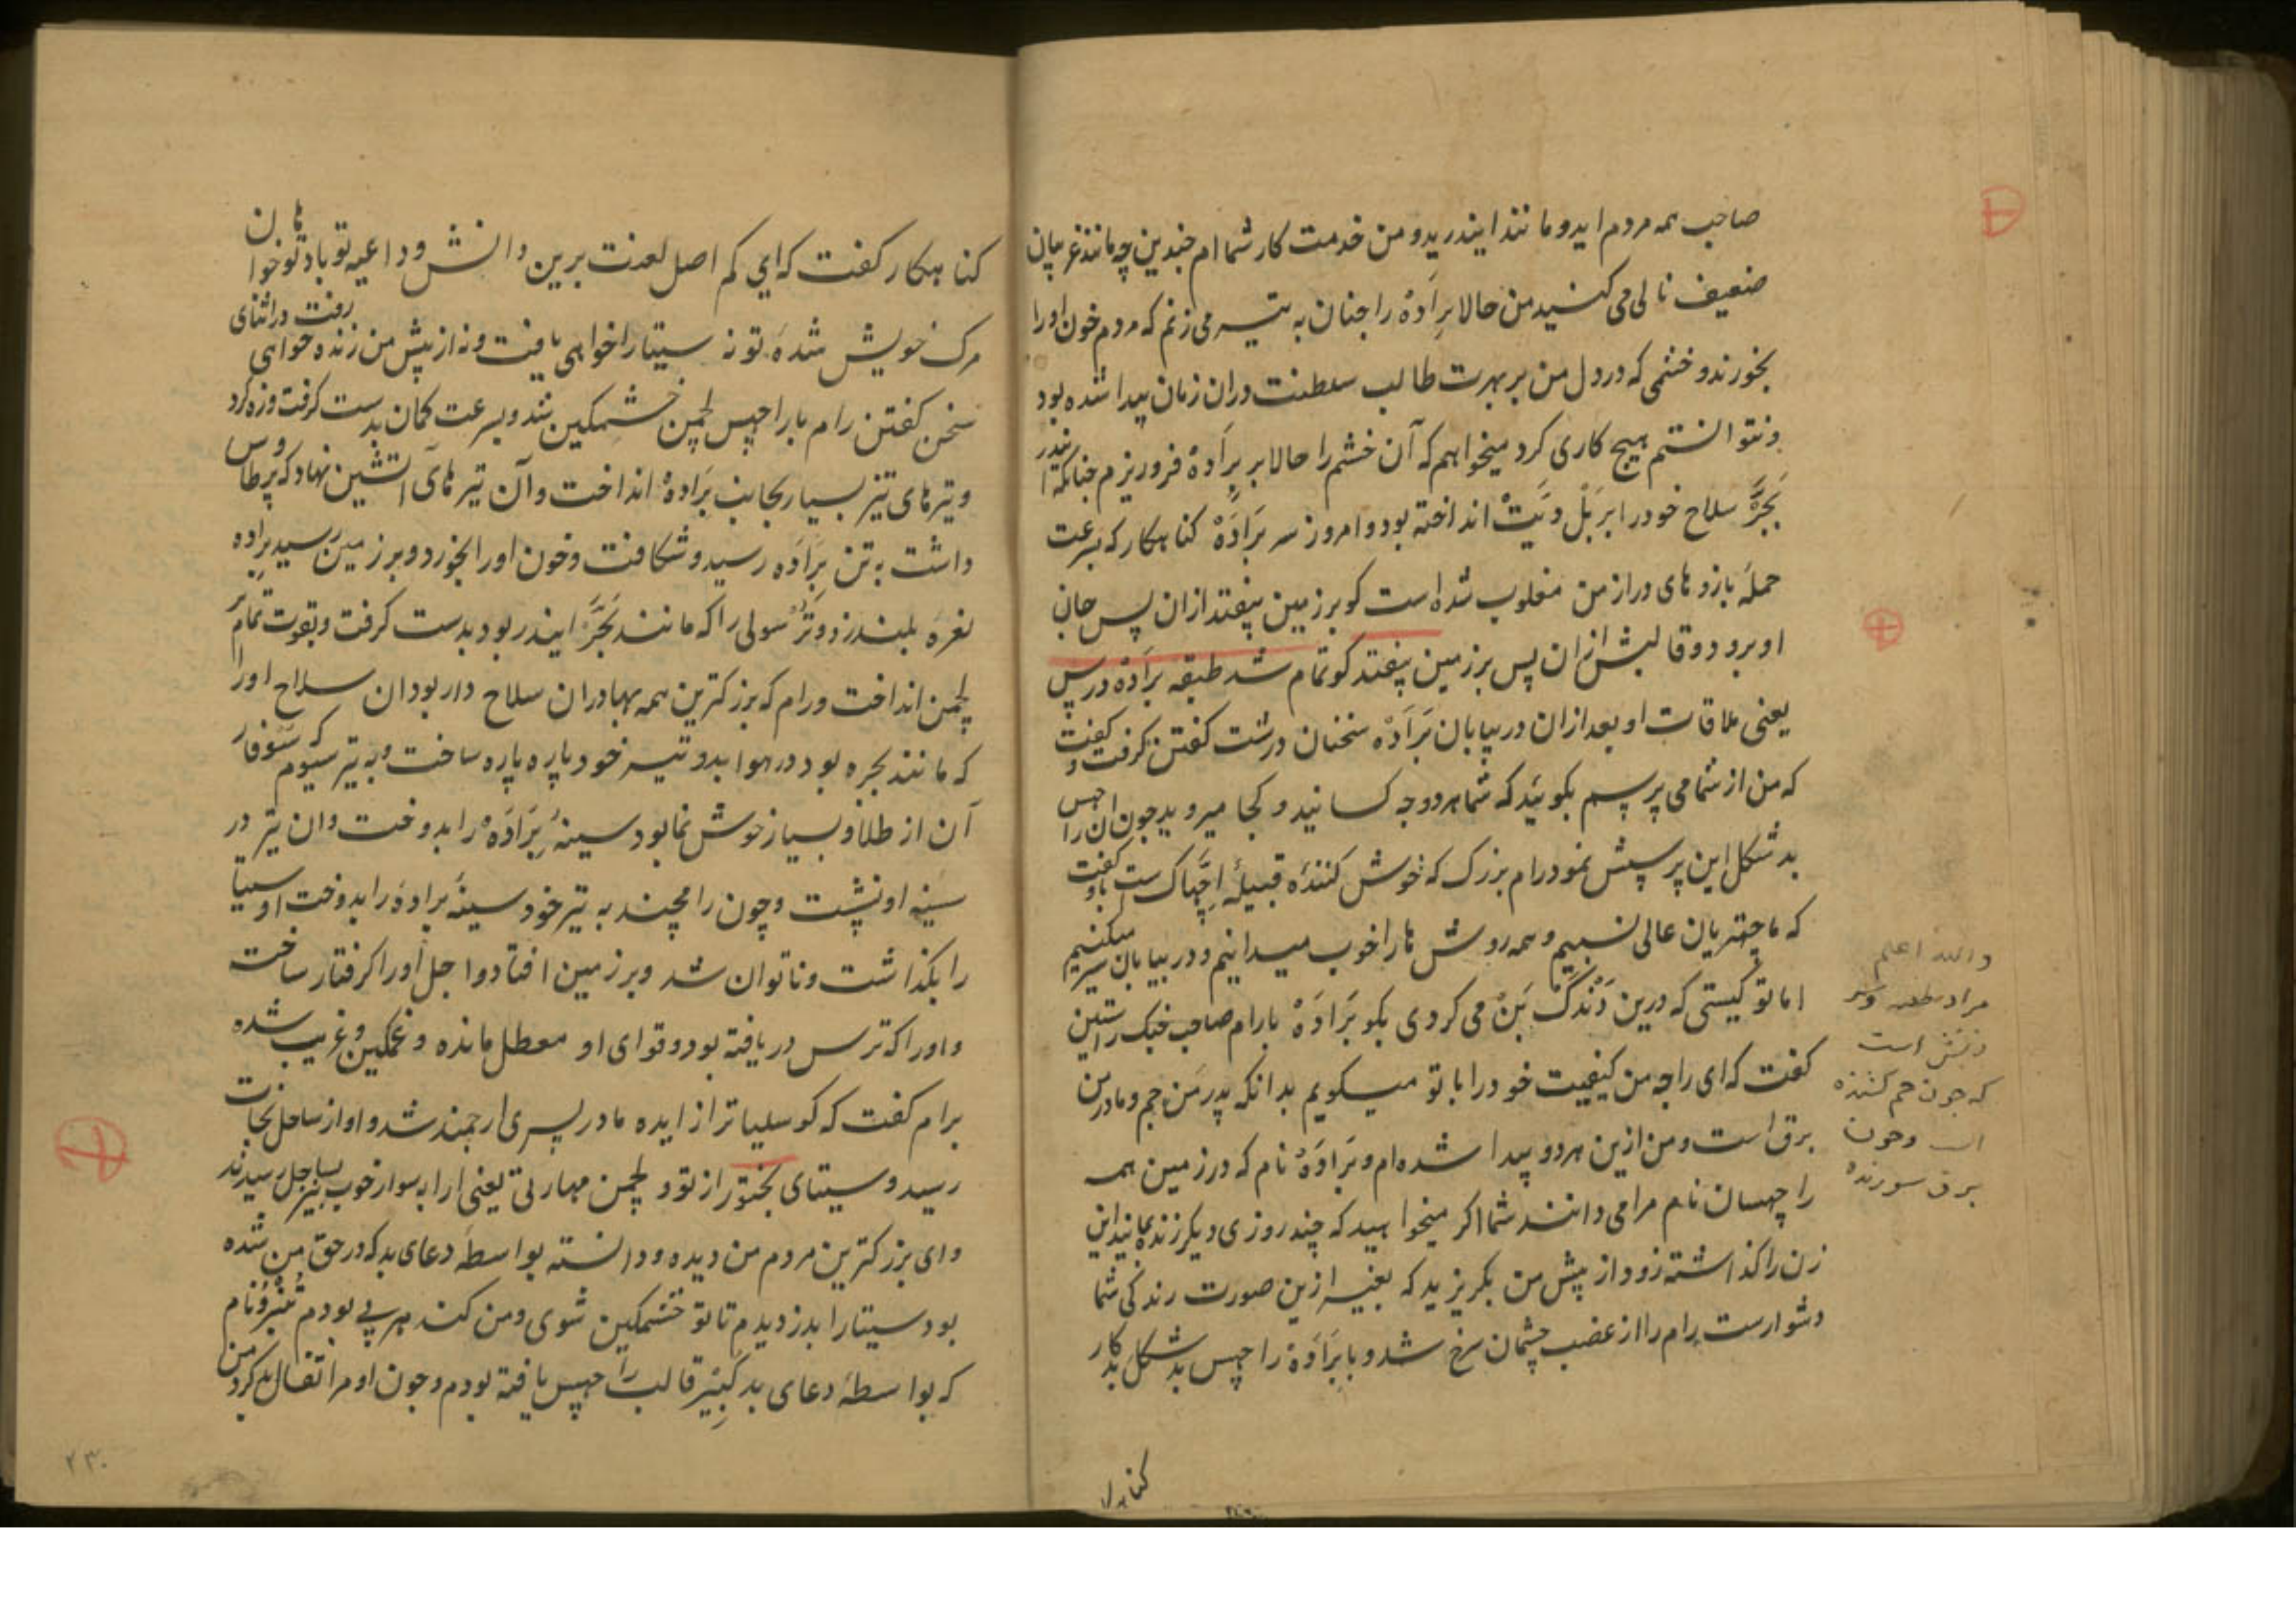 صاحب همه مردم اید و مانند ایندرید و من خدمت کار شما ام چندین چه مانند غریبان
ضعیف نالی می کنید من حالا برادهٔ را چنان به تیر می زنم که مردم خون او را
بخورند و خشمی که در دل من بر بهرت طالب سلطنت دران زمان پیدا شده بود
و نتوانستم هیچ کاری کرد میخواهم که آن خشم را حالا بر برادهٔ فرو ریزم چنانکه ایندر
بجر سلاح خود را بر بل دیت انداخته بود و امروز سر برادهٔ کناهکار که بسرعت
حملهٔ بازوهای دراز من مغلوب شده است کو بر زمین بیفتد ازان پس جان
او برود و قالبش ازان پس بر زمین بیفتد کو تمام شد طبقه برادهٔ در پس
یعنی ملاقات او بعد ازان در بیابان برادهٔ سخنان درشت کفتن کرفت و کفت
که من از شما می پرسم بکوئید که شما هر دو چه کسانید و کجا میروید چون آن راچهس
بد شکل این پرسش نمود رام بزرک که خوش کنندهٔ قبیلهٔ اچهاک ست باو کفت
که ما چهتریان عالی نسبیم و همه روش ها را خوب میدانیم و در بیابان سیر میکنیم
اما تو کیستی که درین دندک بن می کردی بکو برادهٔ با رام صاحب جنک راستین
کفت که ای راجه من کیفیت خود را با تو میکویم بدانکه پدر من جم و مادر من
برق است و من ازین هر دو پیدا شده ام و برادهٔ نام که در زمین همه
راچهسان نام مرا می دانند شما اکر میخواهید که چند روزی دیکر زنده بمانید این
زن را کذاشته زود از پیش من بکریزید که بغیر ازین صورت زندکی شما
دشوارست رام را از غضب چشمان سرخ شد و با برادهٔ راچهس بد شکل بد کار
والله اعلم
مراد
است
که چون جم کشنده
است و چون
برق سوزنده
کناهکار
کناهکار کفت که ای کم اصل لعنت برین دانش و داعیه تو باد تو خواهان
مرک خویش شدهٔ تو نه سیتا را خواهی یافت و نه از پیش من زنده خواهی رفت در اثنای
سخن کفتن رام با راچهس لچمن خشمکین شد و بسرعت کمان بدست کرفت و زه کرد
و تیرهای تیز بسیار بجانب برادهٔ انداخت و آن تیرهای آتشین نهاد که پر طاوس
داشت به تن براده رسید و شکافت و خون او را بخورد و بر زمین رسید براده
نعرهٔ بلند زد و ترسولی را که مانند بجر ایندر بود بدست کرفت و بقوت تمام بر
لچمن انداخت و رام که بزرکترین همه بهادران سلاح دار بود ان سلاح او را
که مانند بجره بود در هوا بدو تیر خود پاره پاره ساخت و به تیر سیوم که سوفار
آن از طلا و بسیار خوش نما بود سینهٔ برادهٔ را بدوخت و ان تیر در
سینهٔ او نشست و چون رامچند به تیر خود سینهٔ برادهٔ را بدوخت او سیتا
را بکذاشت و ناتوان شد و بر زمین افتاد و اجل او را کرفتار ساخت
و او را که ترس دریافته بود و قوای او معطل مانده و غمکین و غریب شده
برام کفت که کوسلیا تر از ایده مادر پسری ارجمند شد و او از ساحل نجات
رسید و سیتای بختور از تو و لچمن مهارتی یعنی ارابه سوار خوب نیز بساحل رسیدند
و ای بزرکترین مردم من دیده و دانسته بواسطهٔ دعای بد که در حق من شده
بود سیتا را بدزدیدم تا تو خشمکین شوی و من کندهرپی بودم تنبرو نام
که بواسطهٔ دعای بد کبیر قالب راچهس یافته بودم و چون او مرا نفال بد کرد من
۲۳۰